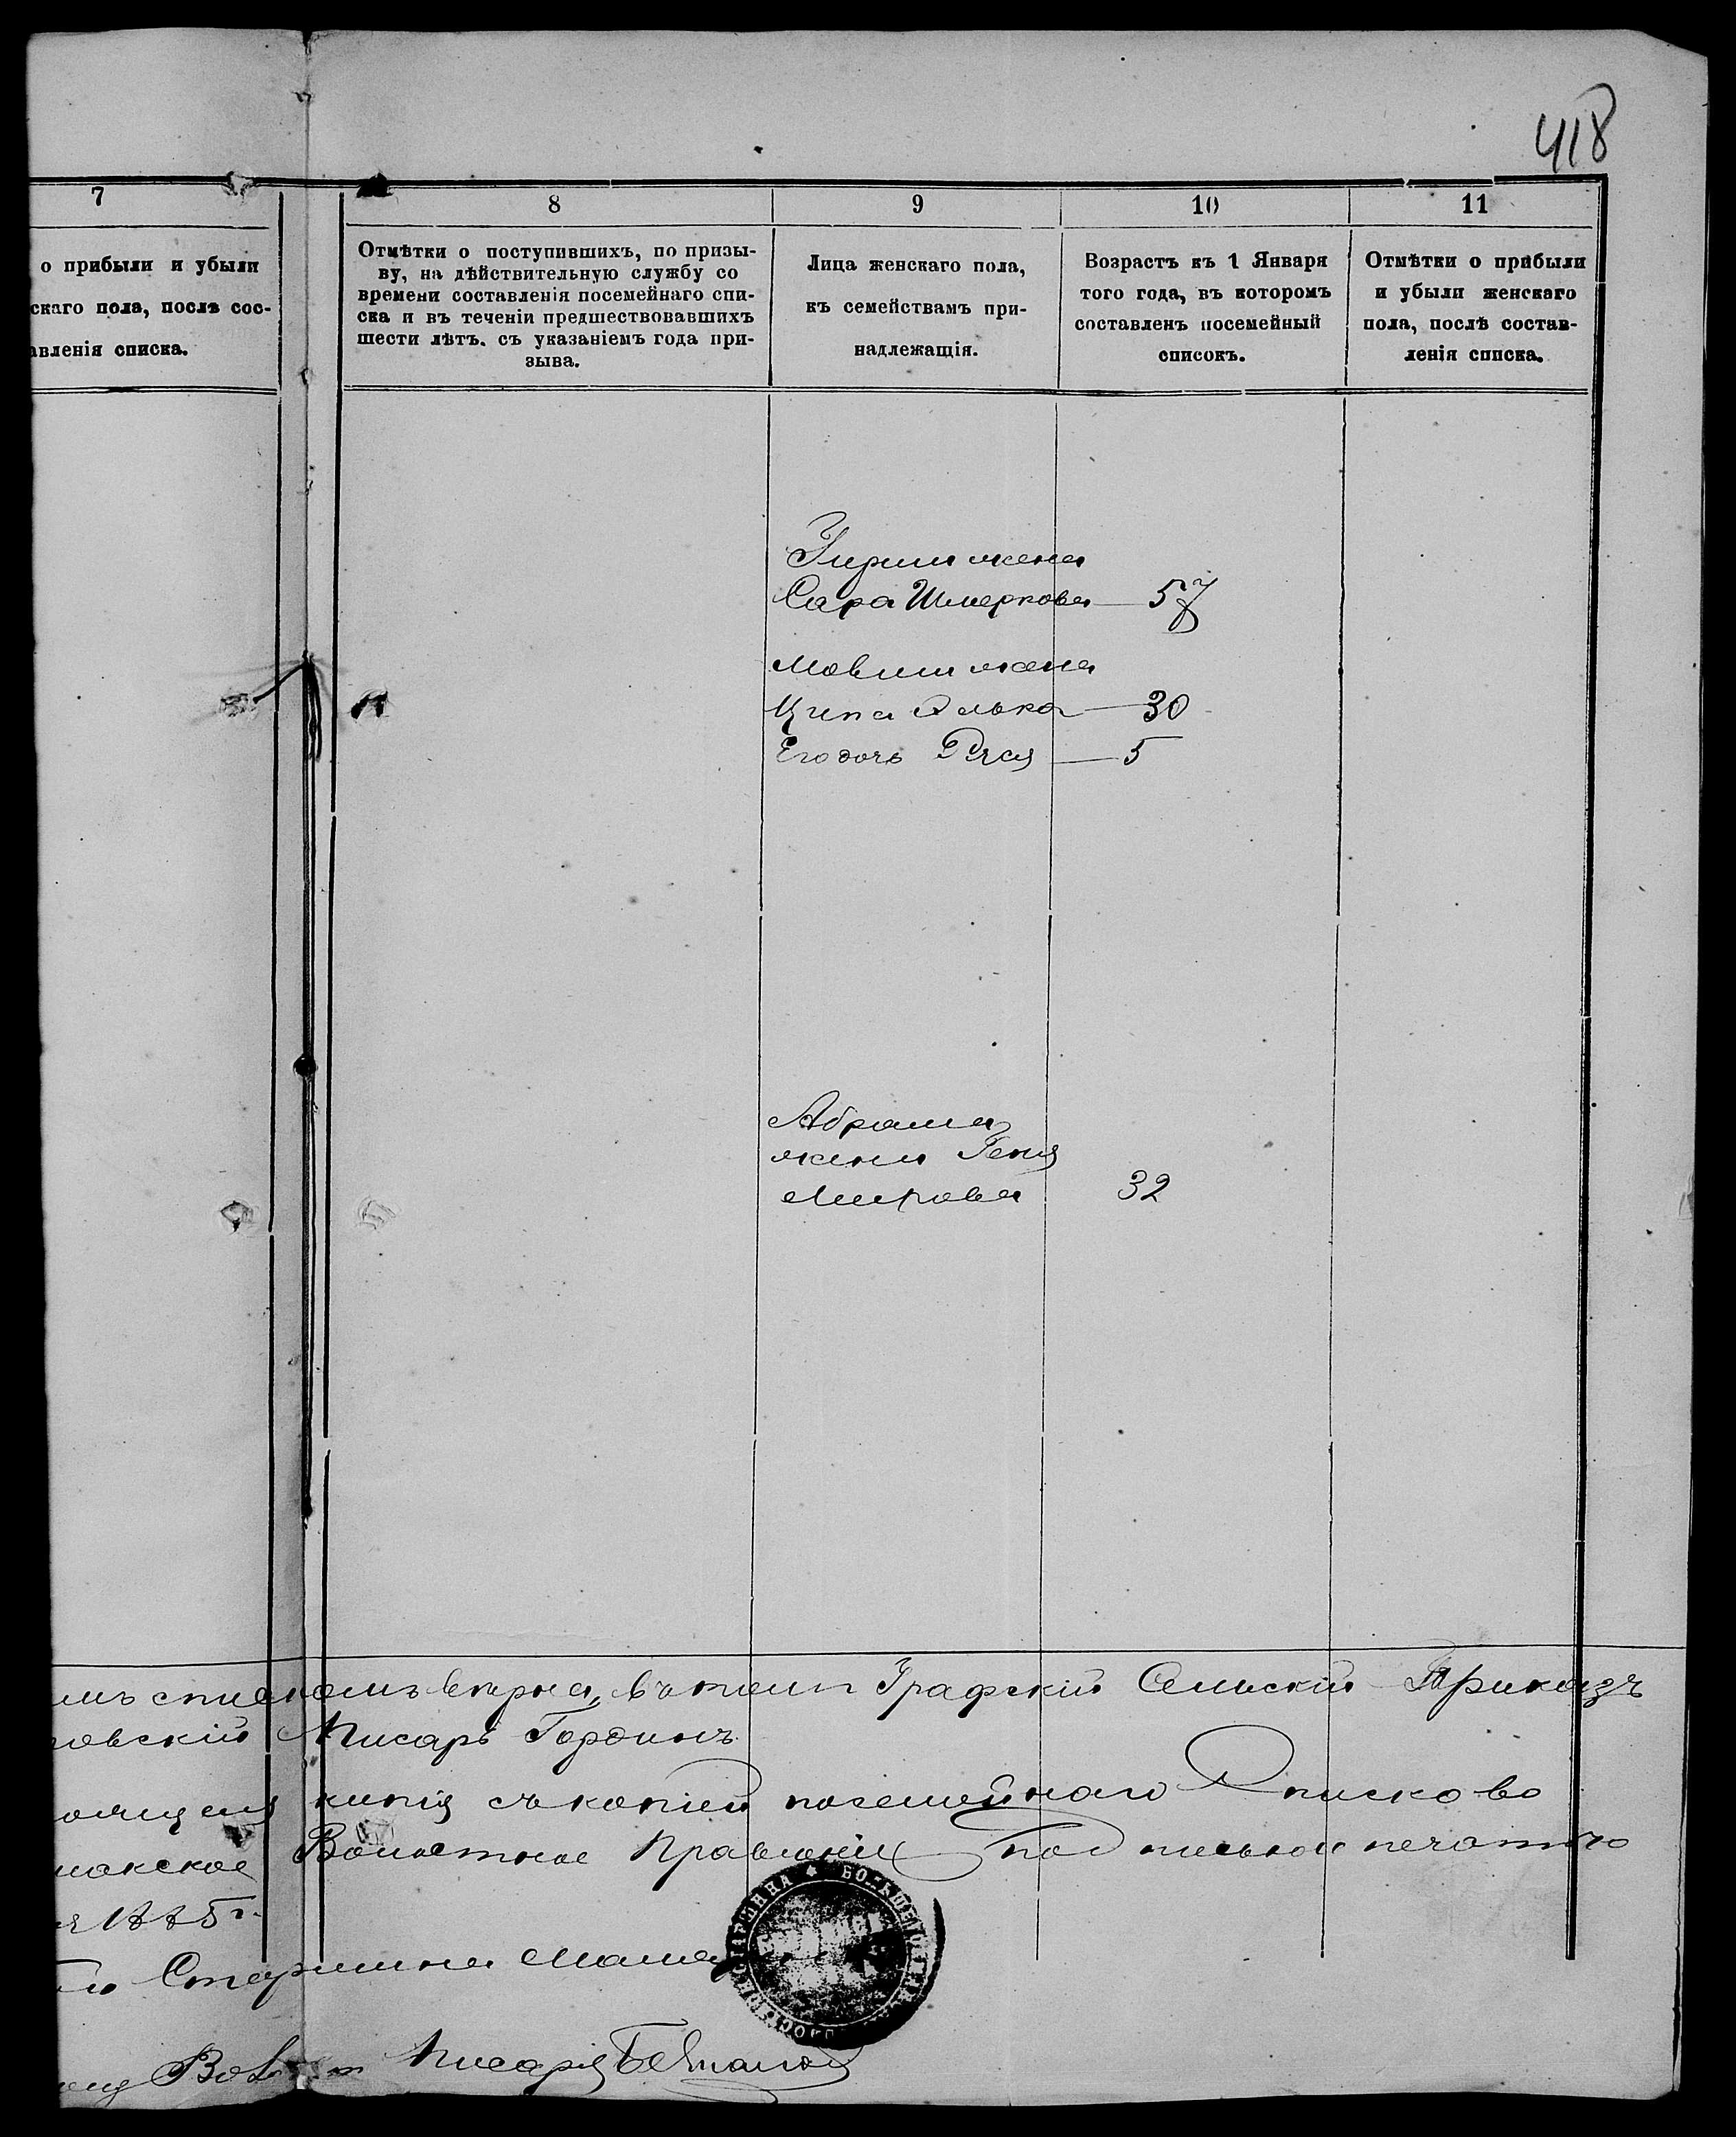 418
7
8
9
10
11
о прибыли и убыли
скаго пола, послѣ сос-
авленія списка.
Отмѣтки о поступившихъ, по призы-
ву, на дѣйствительную службу со
времени составленія посемейнаго спи-
ска и въ теченіи предшествовавшихъ
шести лѣтъ. съ указаніемъ года при-
зыва.
Лица женскаго пола,
къ семействамъ при-
надлежащія.
Возрастъ къ 1 Января
того года, въ которомъ
составленъ посемейный
списокъ.
Отмѣтки о прибыли
и убыли женскаго
пола, послѣ состав-
ленія списка.
Гирши жена
Сара Шмеркова 57
Мовши жена
Ципа 30
Его дочь 5
Абрама
жена Геня
32
мъ спискомъ вѣрна, въ томъ Графскій Сельскій Приказъ
овскій Писарь Гординъ
копія съ копіей посемейнаго Списка во
Волостное Правленіе подписью и печатью
1885 г.
Старшина
Писарь